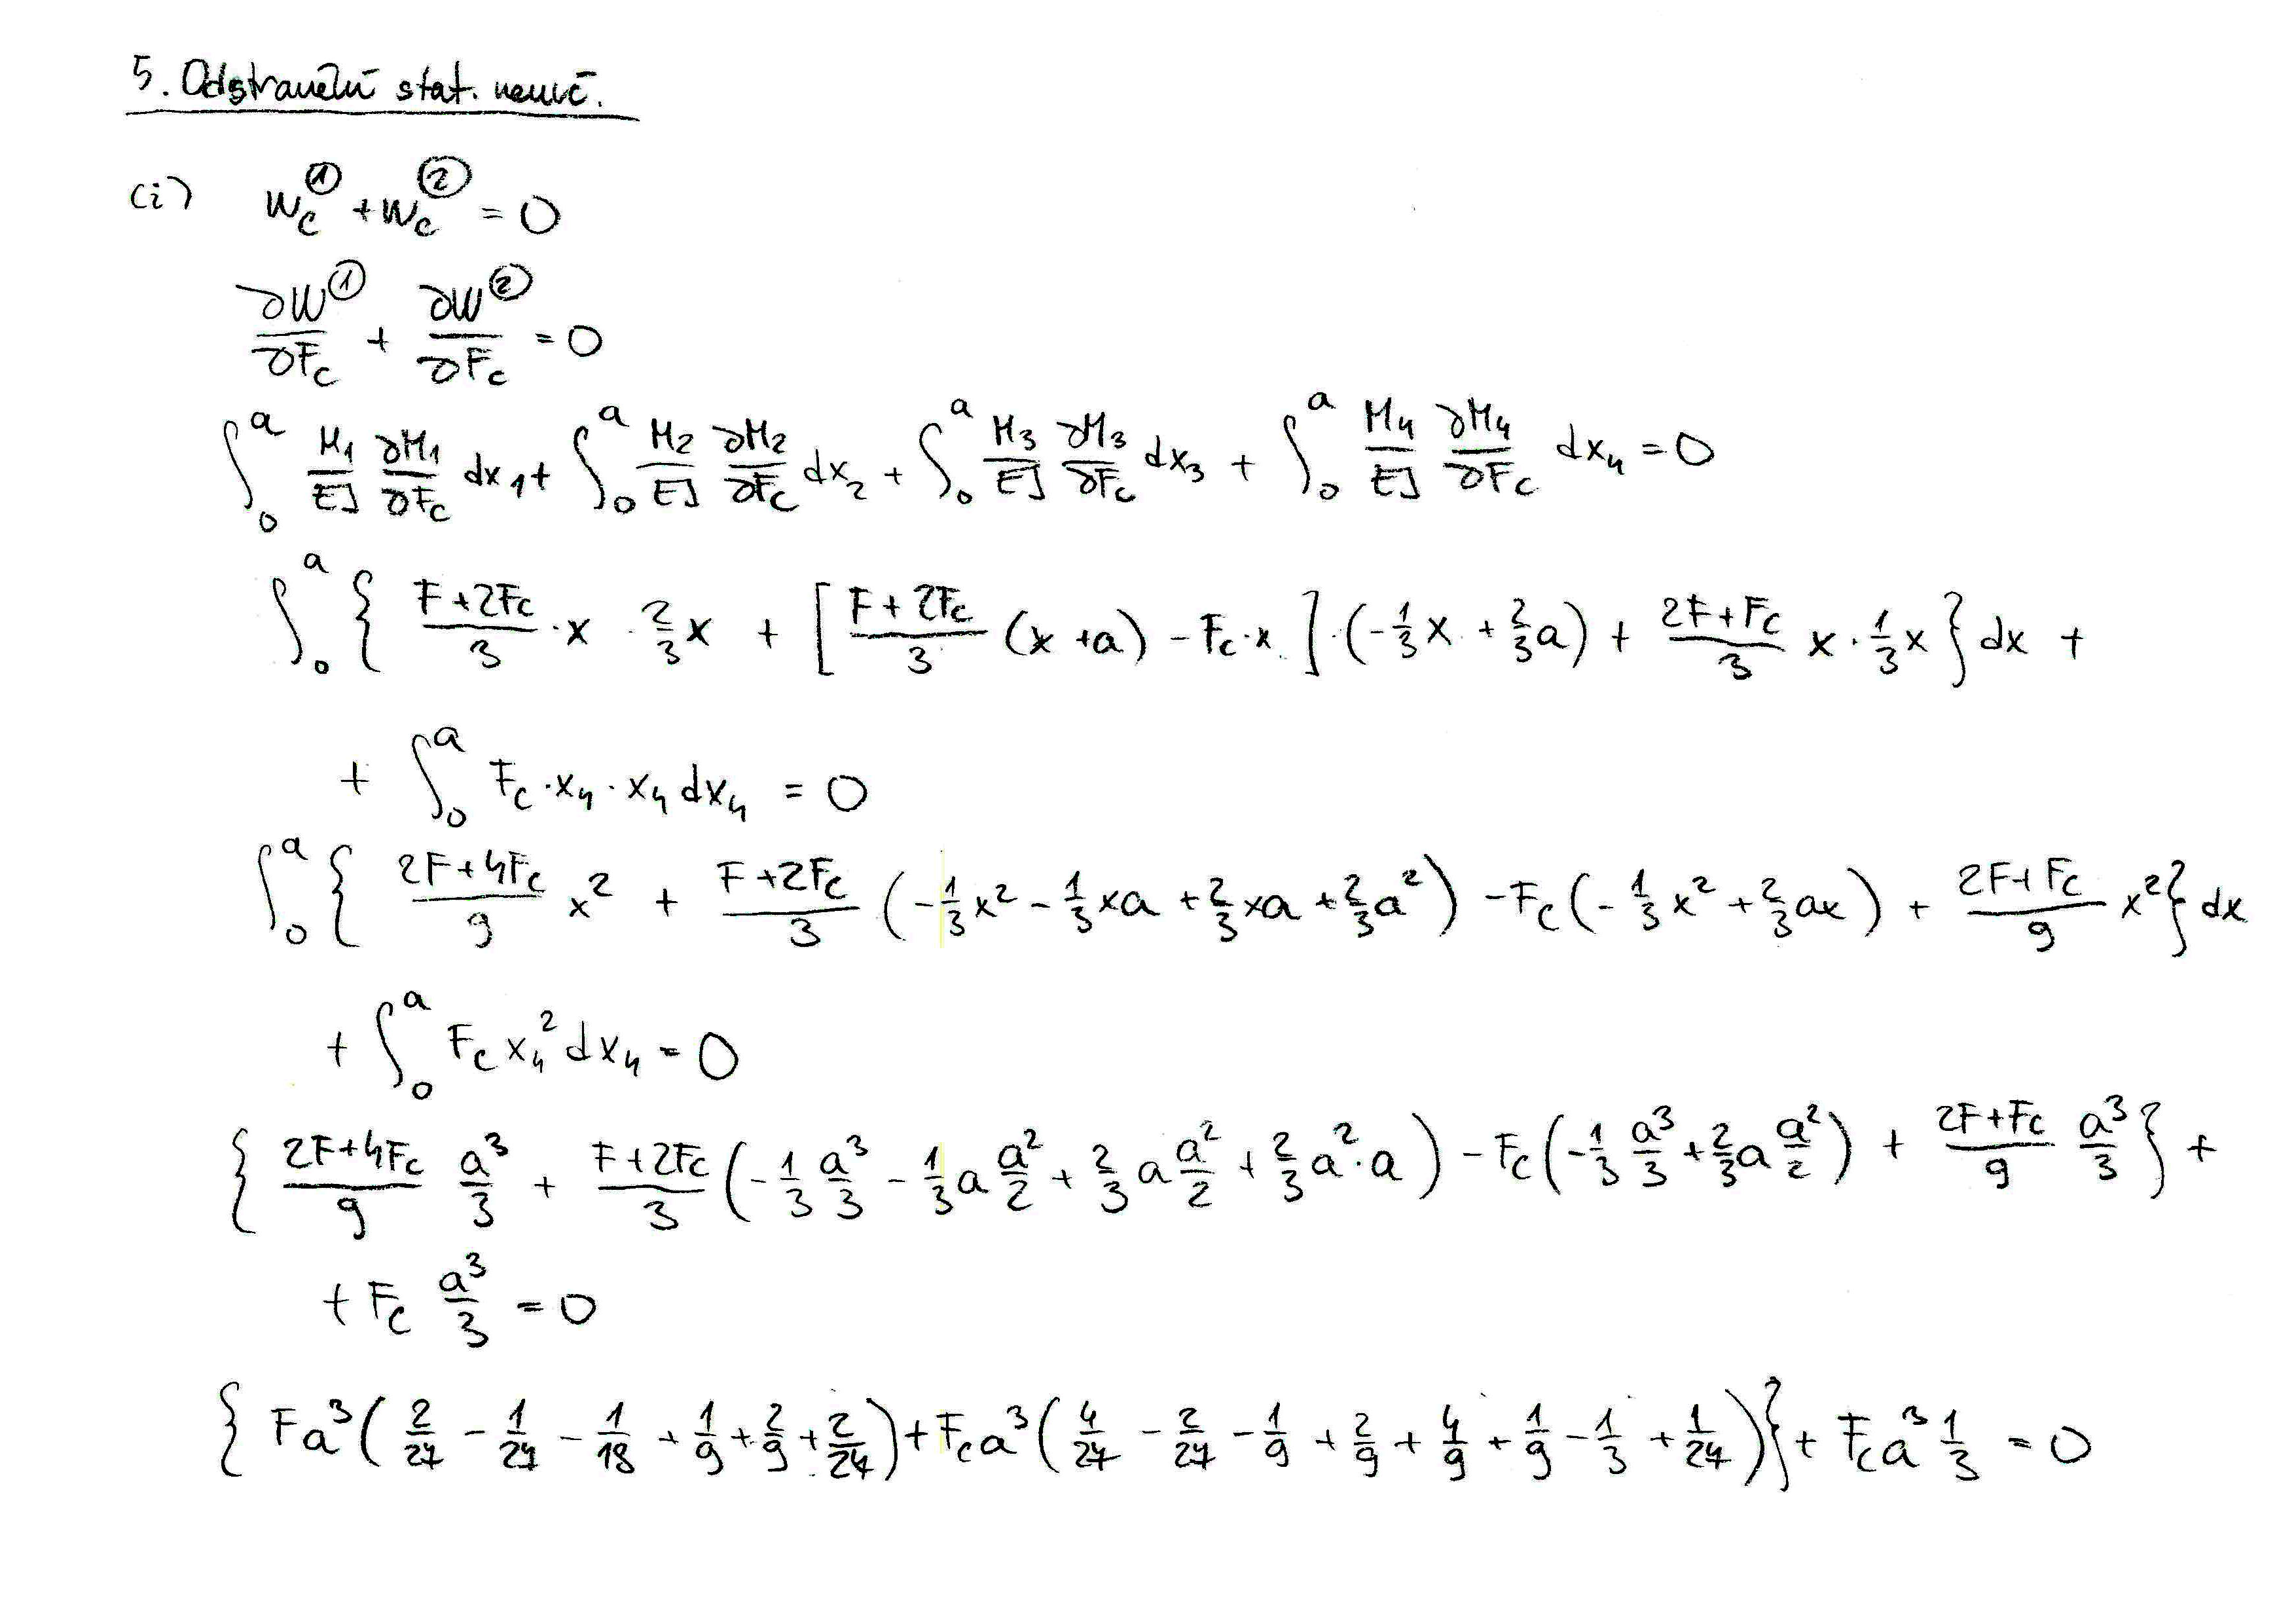 5. Odstranění stat. neurč.
(i) w_C^① + w_C^② = 0
∂W^①/∂F_C + ∂W^②/∂F_C = 0
∫_0^a M_1/EJ ∂M_1/∂F_C dx_1 + ∫_0^a M_2/EJ ∂M_2/∂F_C dx_2 + ∫_0^a M_3/EJ ∂M_3/∂F_C dx_3 + ∫_0^a M_4/EJ ∂M_4/∂F_C dx_4 = 0
∫_0^a { (F+2F_C)/3 · x · 2/3 x + [ (F+2F_C)/3 (x+a) - F_C · x ] · (-1/3 x + 2/3 a) + (2F+F_C)/3 x · 1/3 x } dx +
+ ∫_0^a F_C · x_4 · x_4 dx_4 = 0
∫_0^a { (2F+4F_C)/9 x² + (F+2F_C)/3 (-1/3 x² - 1/3 xa + 2/3 xa + 2/3 a²) - F_C (-1/3 x² + 2/3 ax) + (2F+F_C)/9 x² } dx
+ ∫_0^a F_C x_4² dx_4 = 0
{ (2F+4F_C)/9 a³/3 + (F+2F_C)/3 (-1/3 a³/3 - 1/3 a a²/2 + 2/3 a a²/2 + 2/3 a² · a) - F_C (-1/3 a³/3 + 2/3 a a²/2) + (2F+F_C)/9 a³/3 } +
+ F_C a³/3 = 0
{ Fa³ (2/27 - 1/27 - 1/18 + 1/9 + 2/9 + 2/27) + F_C a³ (4/27 - 2/27 - 1/9 + 2/9 + 4/9 + 1/9 - 1/3 + 1/27) } + F_C a³ 1/3 = 0